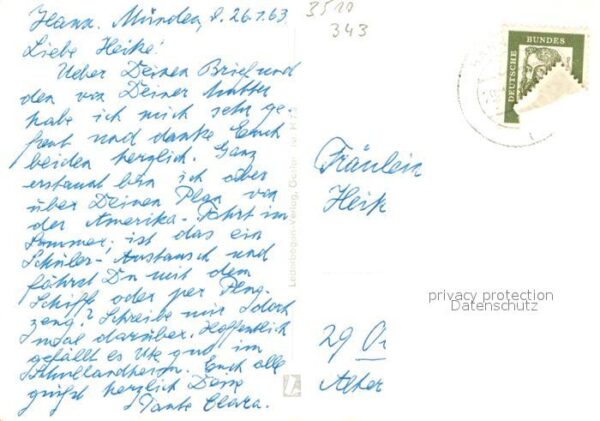 Hann. Münden, d. 26.1.63
Liebe Heike!
Ueber Deinen Brief und
den von Deiner Mutter
habe ich mich sehr ge-
freut und danke Euch
beiden herzlich. Ganz
erstaunt bin ich aber
über Deinen Plan von
der Amerika-Fahrt im
Sommer, ist das ein
Schüler-Austausch und
fährst Du mit dem
Schiff oder per Flug-
zeug? Schreibe mir doch
mal darüber. Hoffentlich
gefällt es Ute gut im
Schullandheim. Euch alle
grüßt herzlich Deine
Tante Clara.
3510
343
DEUTSCHE
BUNDES
Fräulein
Heik
privacy protection
Datenschutz
29
Alter